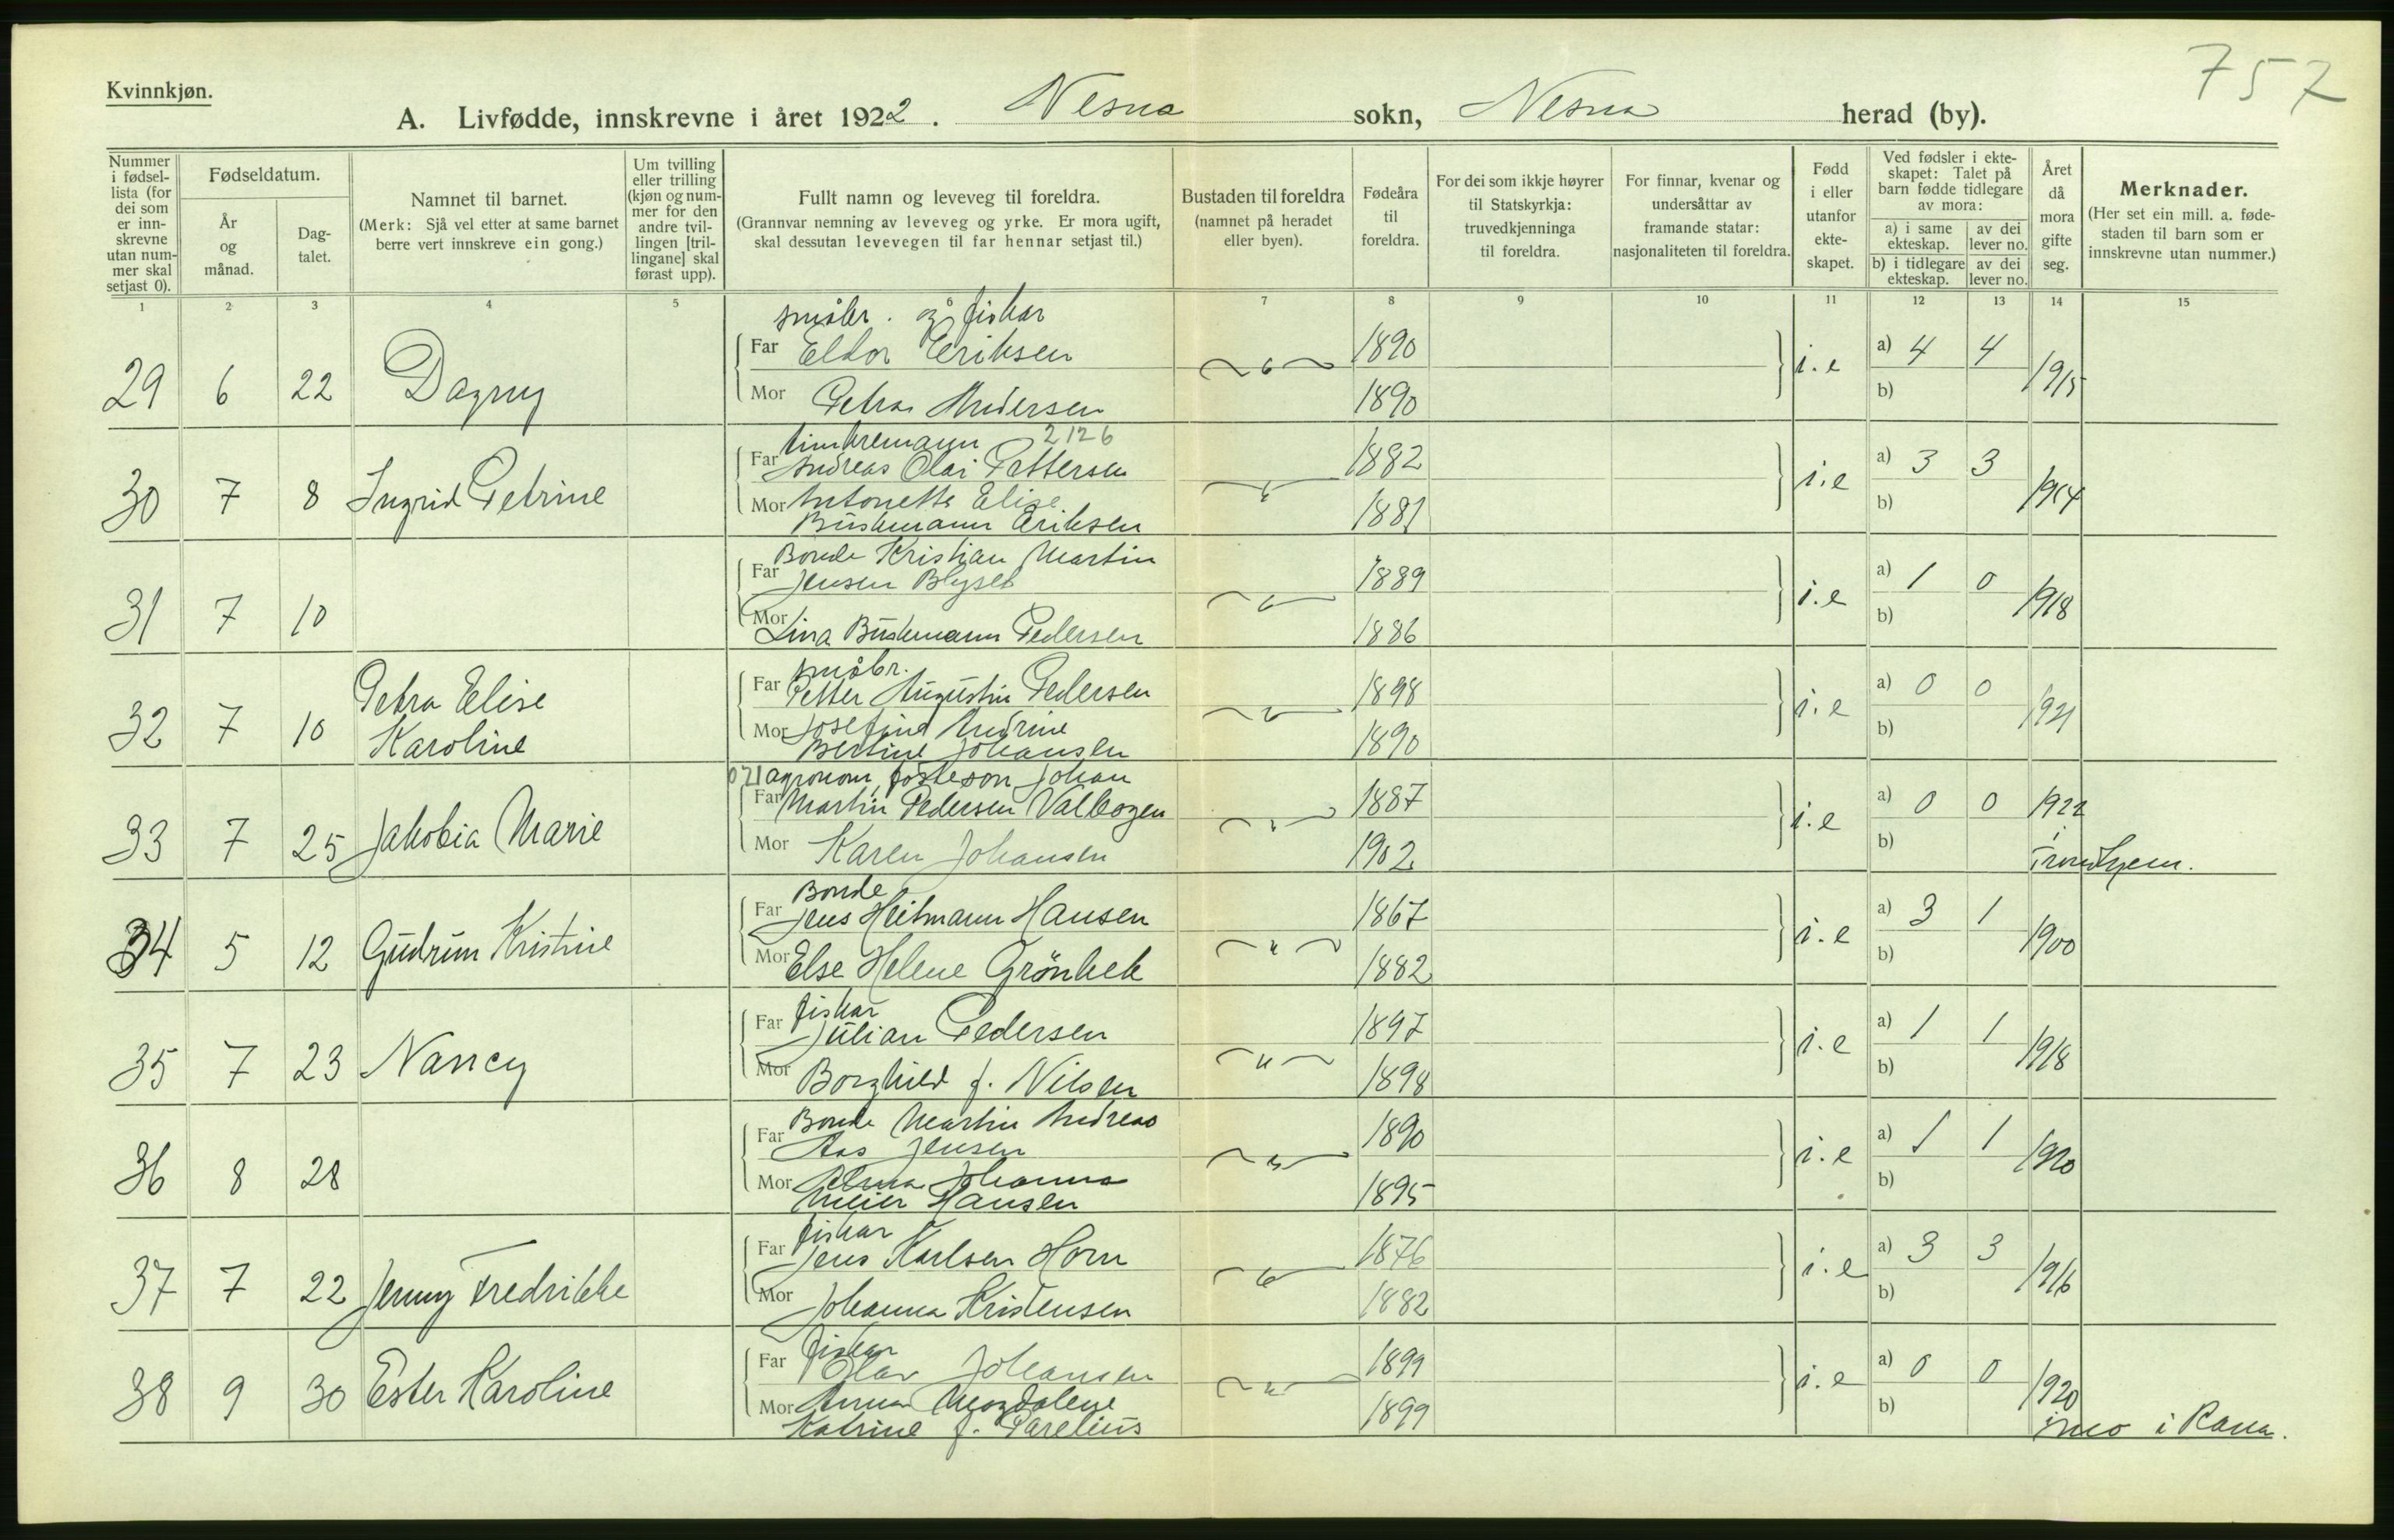 757
Kvinnkjøn.
A. Livfødde, innskrevne i året 1922. Nesna sokn, Nesna herad (by).
Nummer i fødsel-lista (for dei som er inn-skrevne utan num-mer skal setjast 0).
Fødseldatum.
År og månad.
Dag-talet.
Namnet til barnet.
(Merk: Sjå vel etter at same barnet berre vert innskreve ein gong.)
Um tvilling eller trilling (kjøn og num-mer for den andre tvil-lingen [tril-lingane] skal førast upp).
Fullt namn og leveveg til foreldra.
(Grannvar nemning av leveveg og yrke. Er mora ugift, skal dessutan levevegen til far hennar setjast til.)
Bustaden til foreldra
(namnet på heradet eller byen).
Fødeåra til foreldra.
For dei som ikkje høyrer til Statskyrkja: truvedkjenninga til foreldra.
For finnar, kvenar og undersåttar av framande statar: nasjonaliteten til foreldra.
Fødd i eller utanfor ekte-skapet.
Ved fødsler i ekte-skapet: Talet på barn fødde tidlegare av mora:
a) i same ekteskap.
av dei lever no.
b) i tidlegare ekteskap.
av dei lever no.
Året då mora gifte seg.
Merknader.
(Her set ein mill. a. føde-staden til barn som er innskrevne utan nummer.)
1 2 3 4 5 6 7 8 9 10 11 12 13 14 15
småbr. og fiskar
29 6 22 Dagny Far Eldor Eriksen 1890 i.e a) 4 4 1915
Mor Petra Andersen 1890 b)
timbremann 2126
30 7 8 Ingrid Petrine Far Andreas Olai Pettersen 1882 i.e a) 3 3 1914
Mor Antonette Elise 1881 b)
Buskmann Eriksen
Bonde Kristian Martin
31 7 10 Far Jensen Blyset 1889 i.e a) 1 0 1918
Mor Lina Buskmann Pedersen 1886 b)
småbr.
32 7 10 Petra Elise Far Petter Augustin Pedersen 1898 i.e a) 0 0 1921
Karoline Mor Josefine Andrine 1890 b)
Bertine Johansen
071 agronom, fosteson Johan
33 7 25 Jakobia Marie Far Martin Pedersen Valbogen 1887 i.e a) 0 0 1922
Mor Karen Johansen 1902 b) i Trondhjem.
Bonde
34 5 12 Gudrun Kristine Far Jens Heitmann Hansen 1867 i.e a) 3 1 1900
Mor Else Helene Grønbek 1882 b)
fiskar
35 7 23 Nancy Far Julian Pedersen 1897 i.e a) 1 1 1918
Mor Borghild f. Nilsen 1898 b)
Bonde Martin Andreas
36 8 28 Far Aas Jensen 1890 i.e a) 1 1 1920
Mor Alma Johanna 1895 b)
Meier Hansen
fiskar
37 7 22 Jenny Fredrikke Far Jens Karlsen Horn 1876 i.e a) 3 3 1916
Mor Johanna Kristensen 1882 b)
fiskar
38 9 30 Ester Karoline Far Olav Johansen 1899 i.e a) 0 0 1920
Mor Anna Magdalene 1899 b)
Katrine f. Parelius i Mo i Rana.